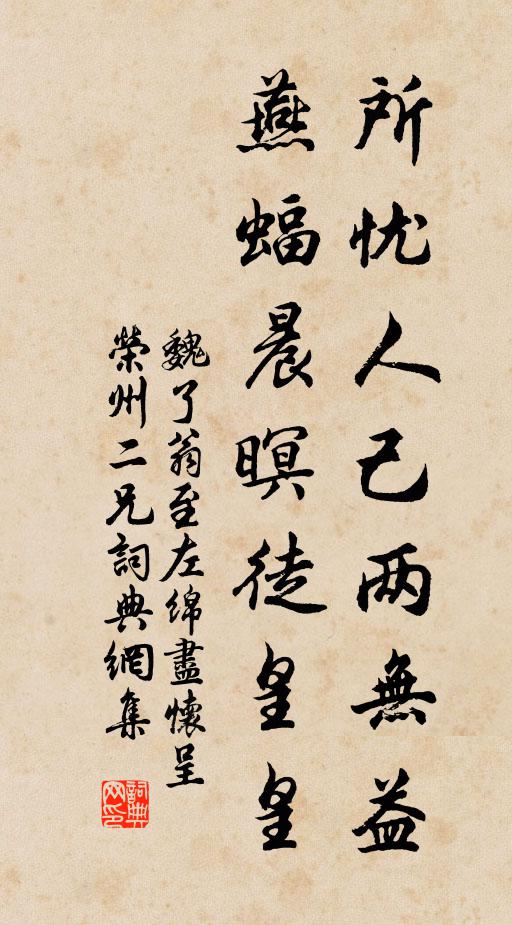 所忧人己两無益
燕蝠晨暝徒皇皇
魏了翁至左绵盡懷呈
榮州二兄詞典網集
詞典网印